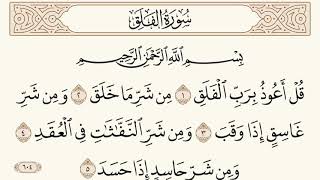 سُورَةُ الفَلَقِ
بِسْمِ اللَّهِ الرَّحْمَٰنِ الرَّحِيمِ
قُلْ أَعُوذُ بِرَبِّ الْفَلَقِ ١ مِن شَرِّ مَا خَلَقَ ٢ وَمِن شَرِّ
غَاسِقٍ إِذَا وَقَبَ ٣ وَمِن شَرِّ النَّفَّاثَاتِ فِي الْعُقَدِ ٤
وَمِن شَرِّ حَاسِدٍ إِذَا حَسَدَ ٥
٦٠٤